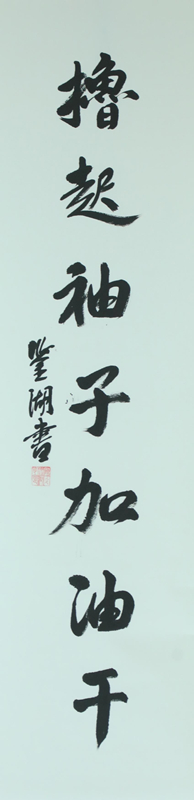 擼起袖子加油干
鉴湖書